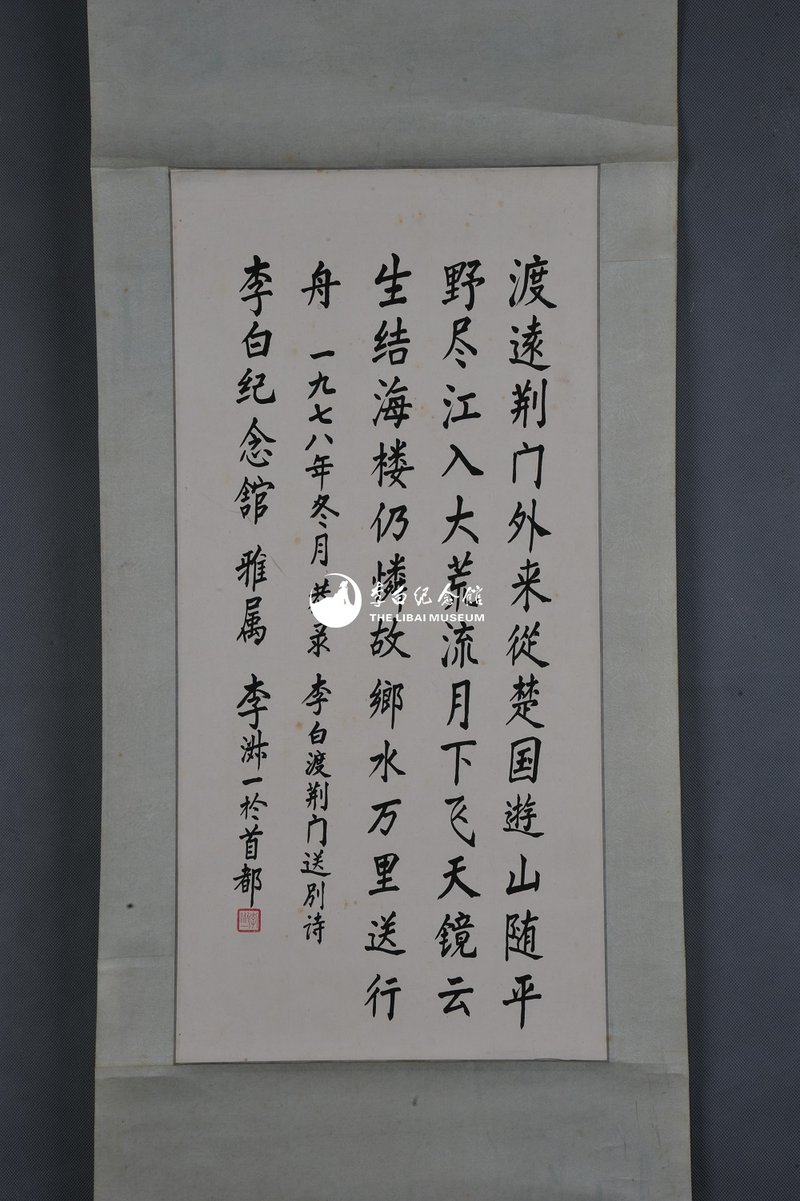 渡遠荆门外来從楚国遊山随平
野尽江入大荒流月下飞天镜云
生结海楼仍憐故鄉水万里送行
舟 一九七八年冬月恭录 李白渡荆门送别诗
李白纪念館 雅属 李淑一於首都
李白纪念館
THE LIBAI MUSEUM